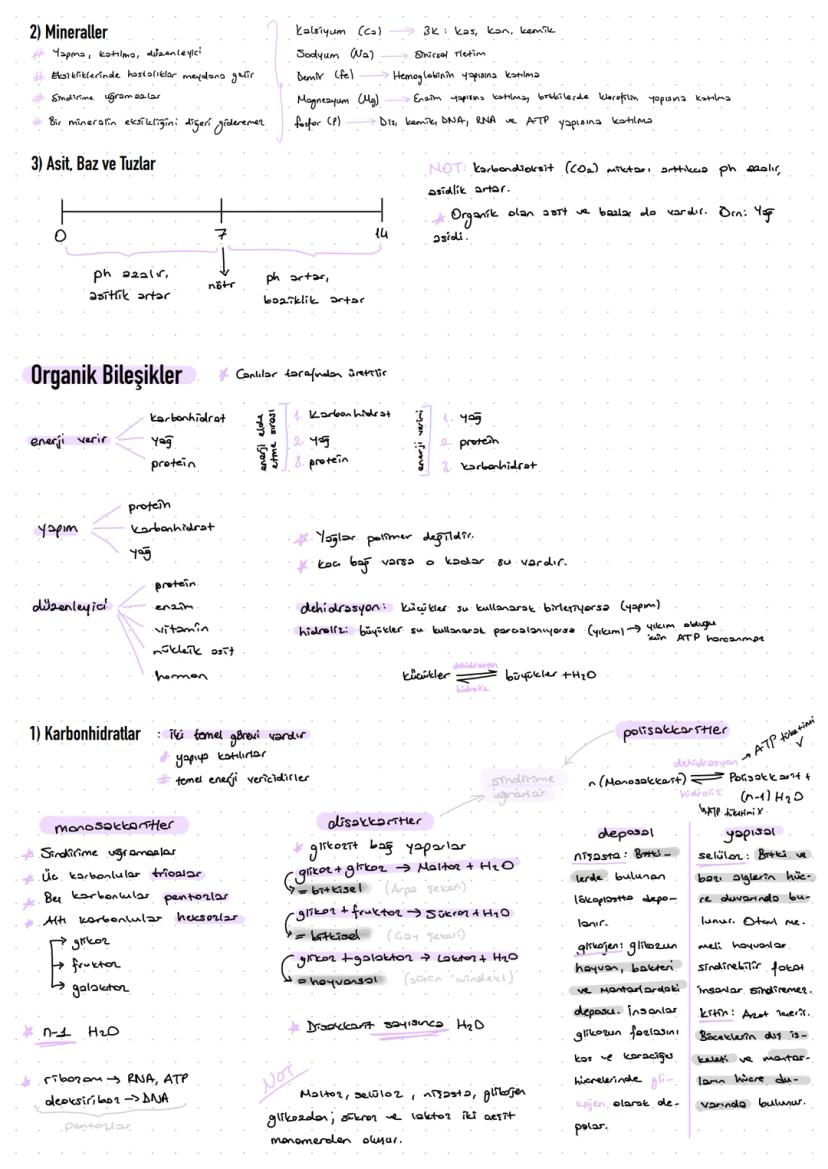 2) Mineraller
# Yapma, katılma, düzenleyici
# Eksikliklerinde hastalıklar meydana gelir
# Sindirime uğramazlar
# Bir mineralin eksikliğini diğeri gideremez
Kalsiyum (Ca) → 3K : kas, kan, kemik
Sodyum (Na) → Sinirsel iletim
Demir (Fe) → Hemoglobinin yapısına katılma
Magnezyum (Mg) → Enzim yapısına katılma, bitkilerde klorofilin yapısına katılma
fosfor (P) → Diş, kemik, DNA, RNA ve ATP yapısına katılma
3) Asit, Baz ve Tuzlar
0 7 14
ph azalır,
asitlik artar
nötr
ph artar,
baziklik artar
NOT: karbondioksit (CO2) miktarı arttıkça ph azalır,
asidlik artar.
* Organik olan asit ve bazlar da vardır. Örn: Yağ
asidi.
Organik Bileşikler
* Canlılar tarafından üretilir
enerji verir
karbonhidrat
yağ
protein
enerji elde
etme sırası
1. Karbonhidrat
2. yağ
3. protein
enerji verimi
1. yağ
2. protein
3. karbonhidrat
yapım
protein
karbonhidrat
yağ
düzenleyici
protein
enzim
vitamin
nükleik asit
hormon
* Yağlar polimer değildir.
* Kaç bağ varsa o kadar su vardır.
dehidrasyon: küçükler su kullanarak birleşiyorsa (yapım)
hidroliz: büyükler su kullanarak parçalanıyorsa (yıkım) → yıkım olduğu
için ATP harcanmaz
küçükler dehidrasyon hidroliz büyükler + H2O
1) Karbonhidratlar : iki temel görevi vardır
# yapıya katılırlar
# temel enerji vericidirler
polisakkaritler
sindirime
uğrarlar
ATP tüketimi ✓
dehidrasyon
n (Monosakkarit) ⇌ Polisakkarit +
hidroliz (n-1) H2O
ATP tüketimi X
monosakkaritler
* Sindirime uğramazlar
* Üç karbonlular triozlar
* Beş karbonlular pentozlar
* Altı karbonlular heksozlar
→ glikoz
→ fruktoz
→ galaktoz
* n-1 H2O
* riboz → RNA, ATP
deoksiriboz → DNA
pentozlar
disakkaritler
* glikozit bağ yaparlar
glikoz + glikoz → Maltoz + H2O
= bitkisel (Arpa şekeri)
glikoz + fruktoz → Sükroz + H2O
= bitkisel (Çay şekeri)
glikoz + galaktoz → Laktoz + H2O
= hayvansal
* Disakkarit sayısınca H2O
NOT
Maltoz, selüloz, nişasta, glikojen
glikozdan; sükroz ve laktoz iki çeşit
monomerden oluşur.
deposal
nişasta: Bitki-
lerde bulunan
lökoplastta depo-
lanır.
glikojen: glikozun
hayvan, bakteri
ve mantarlardaki
deposu. İnsanlar
glikozun fazlasını
kas ve karaciğer
hücrelerinde gli-
kojen olarak de-
polar.
yapısal
selüloz: Bitki ve
bazı alglerin hüc-
re duvarında bu-
lunur. Otçul me-
meli hayvanlar
sindirebilir fakat
insanlar sindiremez.
kitin: Azot içerir.
Böceklerin dış is-
keleti ve mantar-
ların hücre du-
varında bulunur.